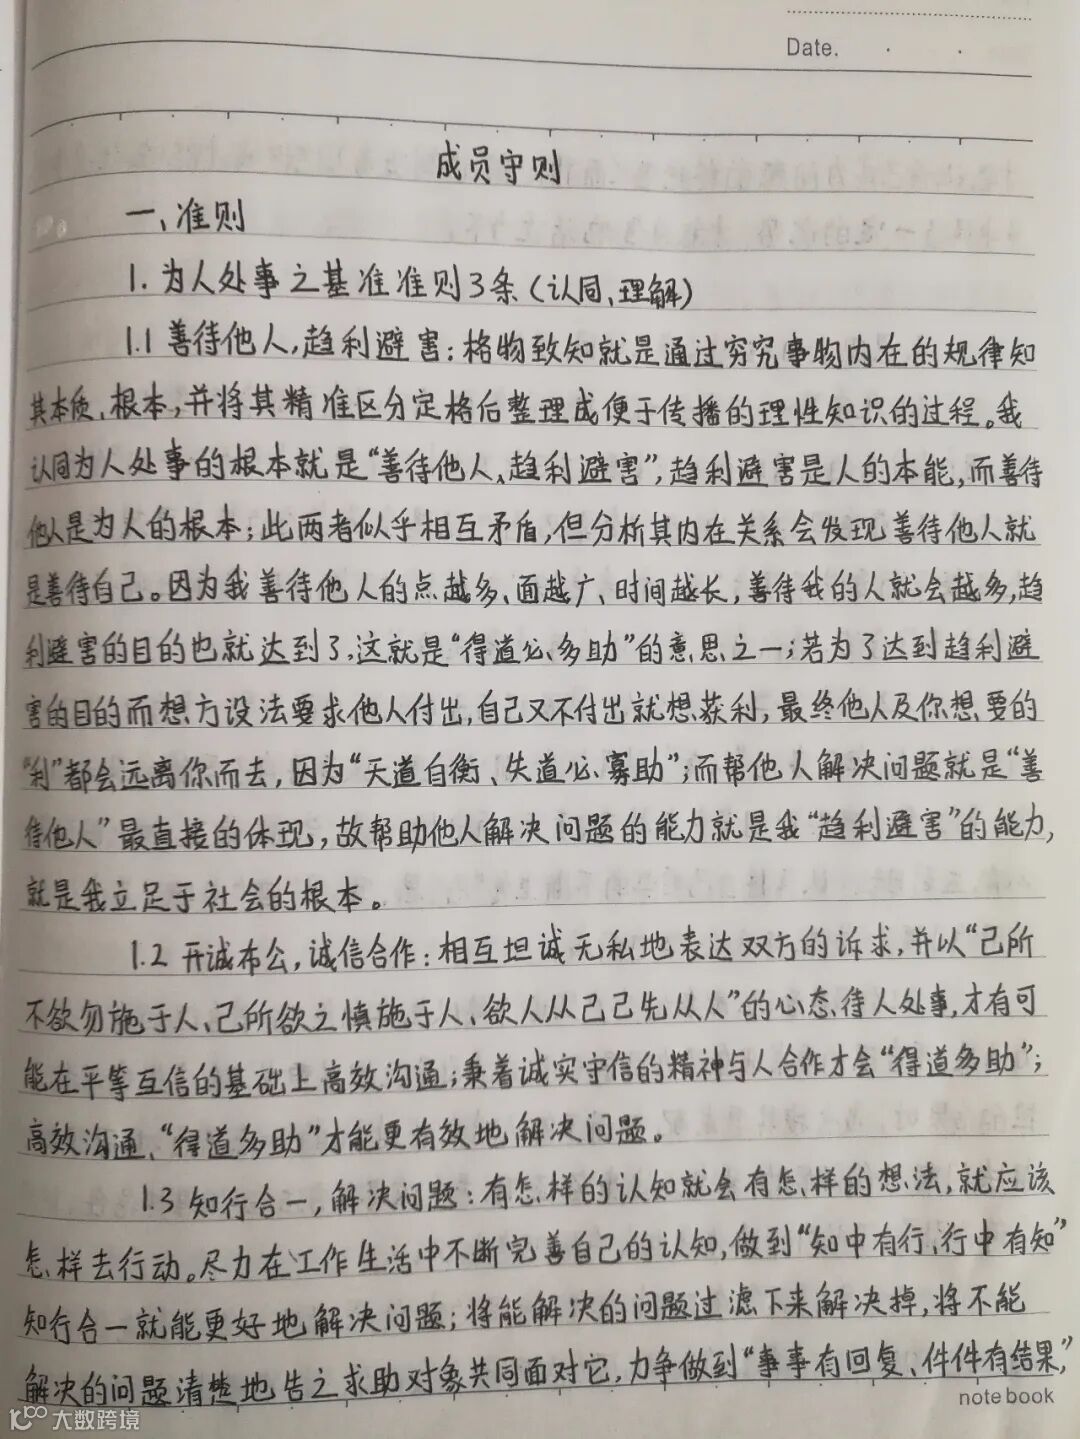 Date.
成员守则
一、准则
1. 为人处事之基准准则3条(认同、理解)
1.1 善待他人,趋利避害:格物致知就是通过穷究事物内在的规律知
其本质、根本,并将其精准区分定格后整理成便于传播的理性知识的过程。我
认同为人处事的根本就是“善待他人、趋利避害”,趋利避害是人的本能,而善待
他人是为人的根本;此两者似乎相互矛盾,但分析其内在关系会发现善待他人就
是善待自己。因为我善待他人的点越多、面越广、时间越长,善待我的人就会越多,趋
利避害的目的也就达到了,这就是“得道必多助”的意思之一;若为了达到趋利避
害的目的而想方设法要求他人付出,自己又不付出就想获利,最终他人及你想要的
“利”都会远离你而去,因为“天道自衡、失道必寡助”;而帮他人解决问题就是“善
待他人”最直接的体现,故帮助他人解决问题的能力就是我“趋利避害”的能力,
就是我立足于社会的根本。
1.2 开诚布公,诚信合作:相互坦诚无私地表达双方的诉求,并以“己所
不欲勿施于人、己所欲之慎施于人、欲人从己己先从人”的心态待人处事,才有可
能在平等互信的基础上高效沟通;秉着诚实守信的精神与人合作才会“得道多助”;
高效沟通、“得道多助”才能更有效地解决问题。
1.3 知行合一,解决问题:有怎样的认知就会有怎样的想法,就应该
怎样去行动。尽力在工作生活中不断完善自己的认知,做到“知中有行、行中有知”
知行合一就能更好地解决问题;将能解决的问题过滤下来解决掉,将不能
解决的问题清楚地告之求助对象共同面对它,力争做到“事事有回复、件件有结果,”
notebook
100 大数跨境